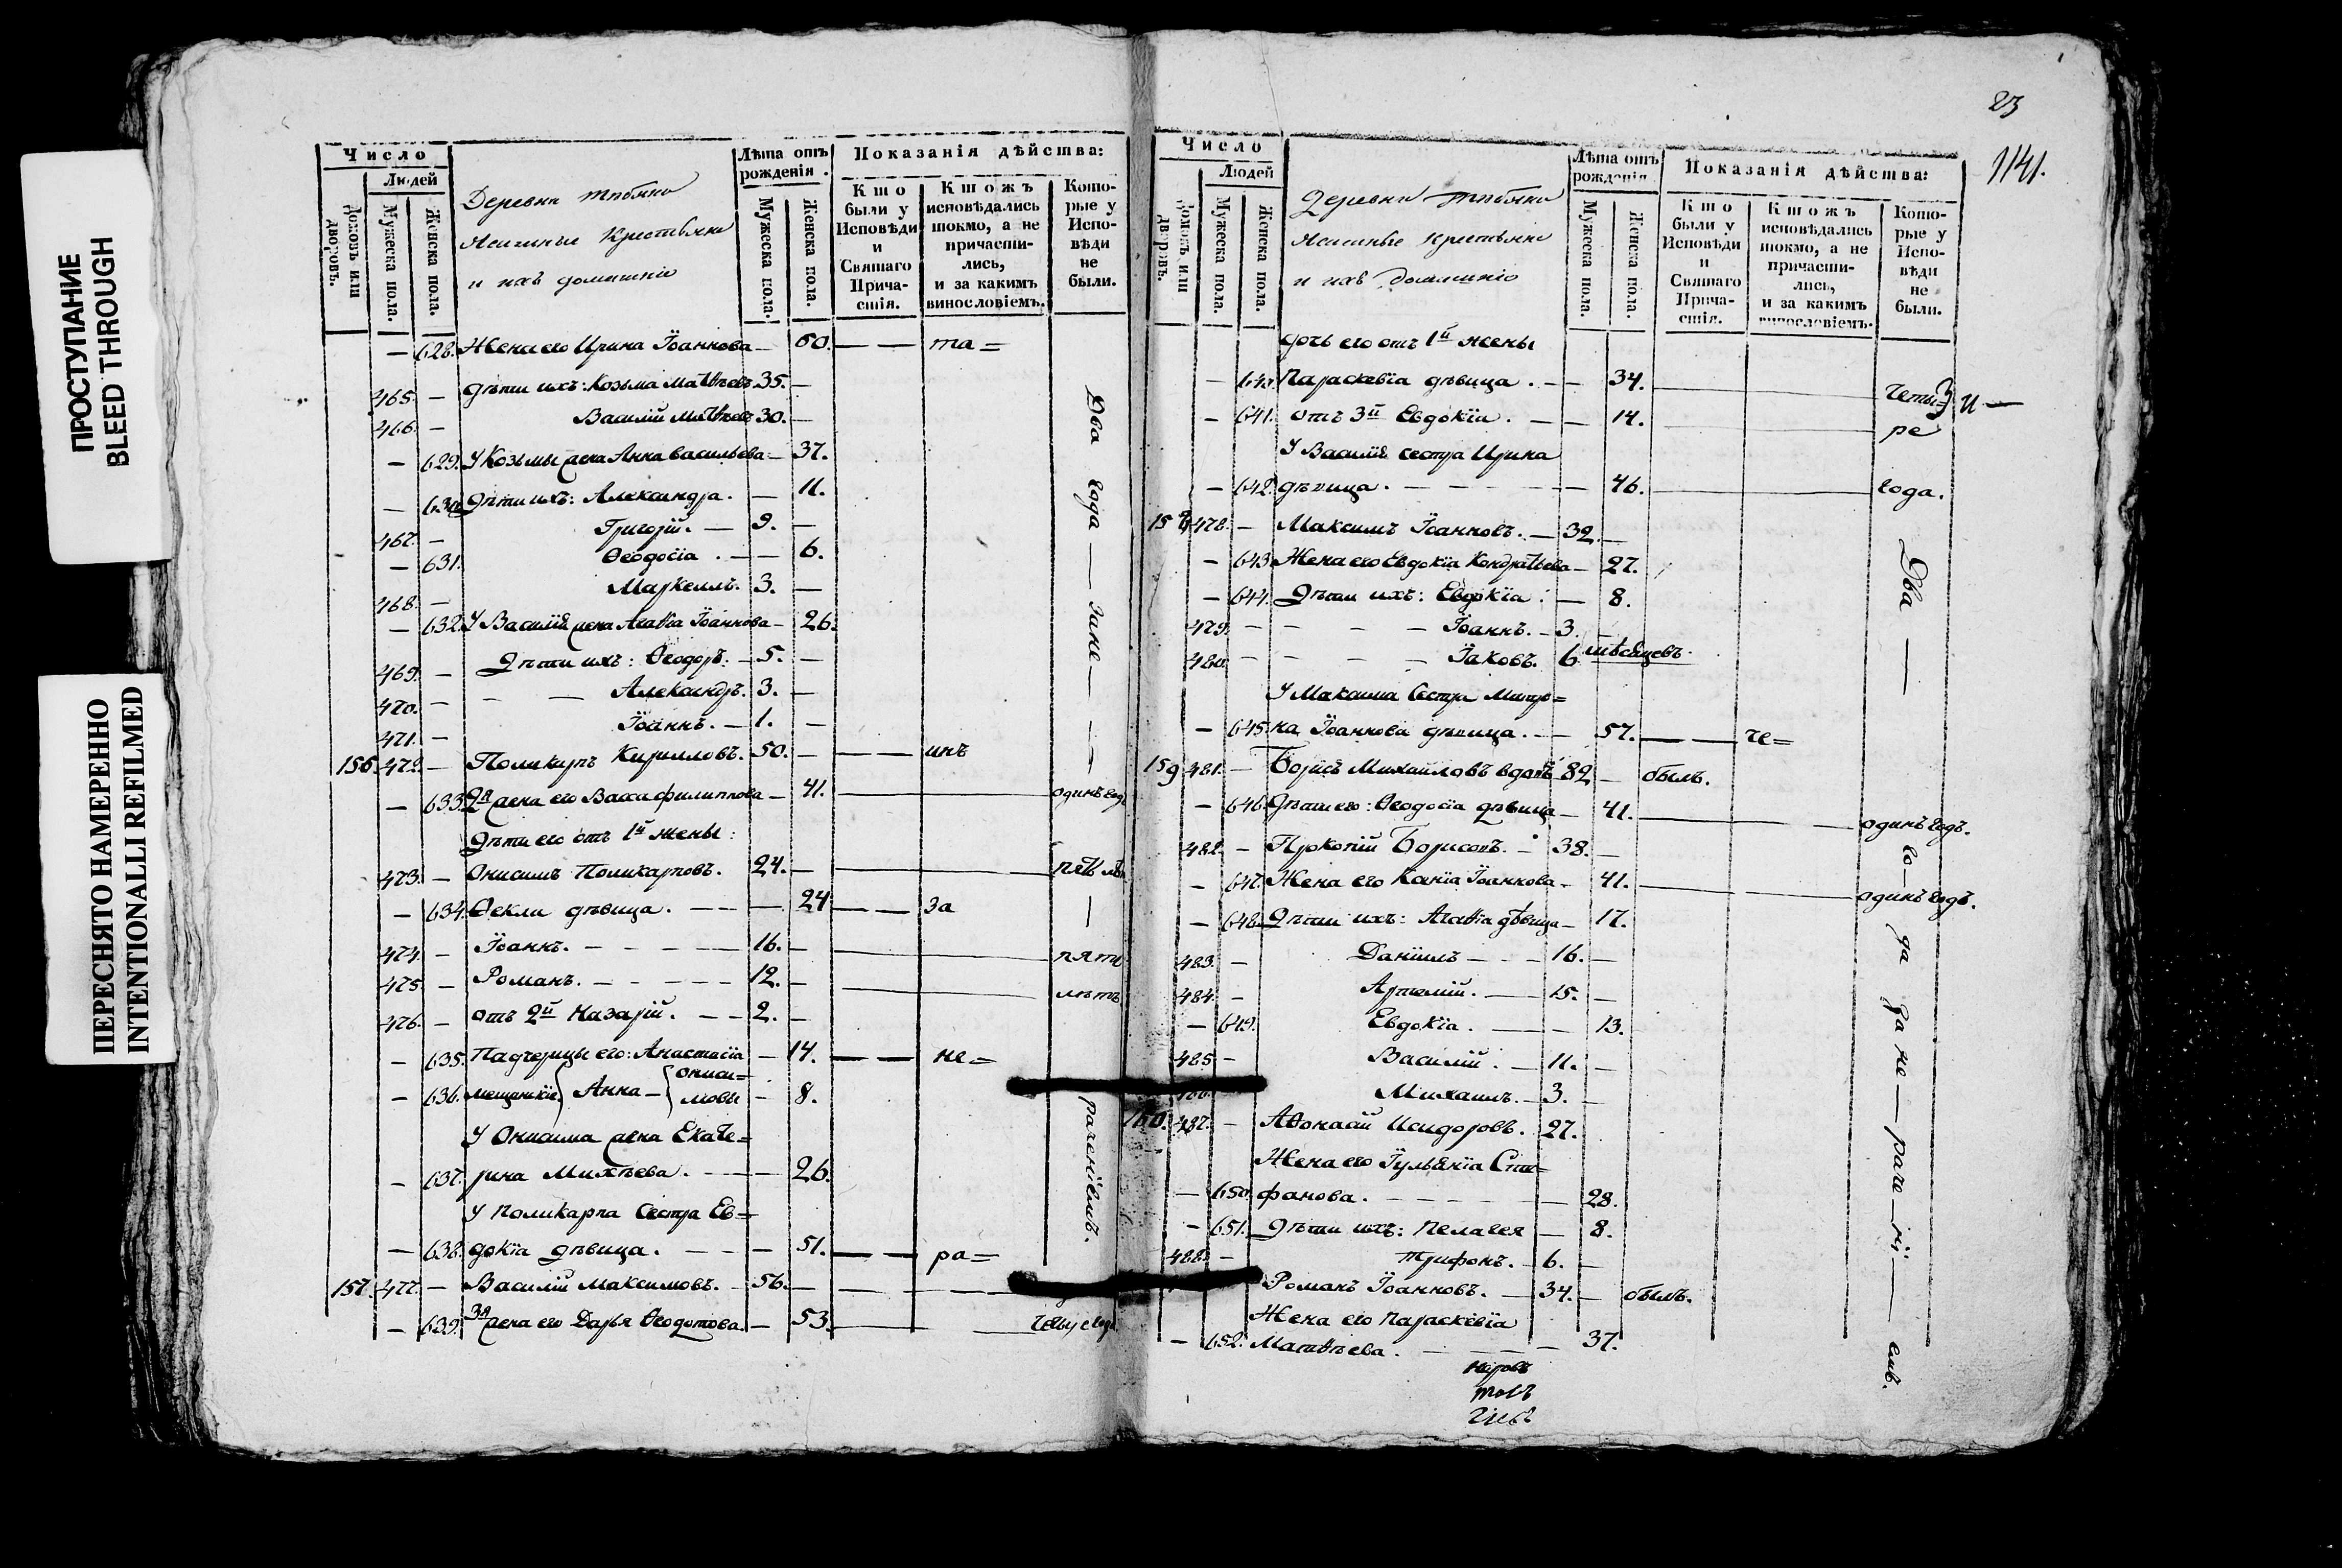 ПРОСТУПАНИЕ
BLEED THROUGH
ПЕРЕСНЯТО НАМЕРЕННО
INTENTIONALLI REFILMED
Число
Людей
Домовъ или дворовъ.
Мужеска пола.
Женска пола.
Деревни
Крестьяне
и ихъ домашніе
Лѣта отъ рожденія.
Мужеска пола.
Женска пола.
Показанія дѣйства:
Кто были у Исповѣди и Святаго Прича-стія.
Ктожъ исповѣдались токмо, а не причасти-лись, и за какимъ винословіемъ.
Кото-рые у Испо-вѣди не были.
— 628. Жена его Ирина Іоаннова — 60. — — та=
465. — Дѣти ихъ: Козьма Матѳѣевъ 35. —
466. — Василій Матѳѣевъ 30. —
— 629. У Козьмы жена Анна Васильева — 37.
— 630. Дѣти ихъ: Александра. — 11.
467. — Григорій. — 9. —
— 631. Ѳеодосіа. — — 6.
468. — Маркеллъ. 3. —
— 632. У Василія жена Агаѳіа Іоаннова — 26.
469. — Дѣти ихъ: Ѳеодоръ. — 5. —
470. — — — Александръ. 3. —
471. — Іоаннъ. — 1. —
156. 472. — Поликарпъ Кирилловъ. 50. — — — инъ
— 633. 2я жена его Васса Филиппова — 41. одинъ годъ
Дѣти его отъ 1й жены:
473. — Онисимъ Поликарповъ. 24. — пять лѣтъ
— 634. Ѳекла дѣвица. — — 24 — — за
474. — Іоаннъ. — — — 16. — пять
475. — Романъ. — — — 12. — лѣтъ
476. — отъ 2й Назарій. — — 2. —
— 635. Падчерицы его: Анастасіа — 14. — — не=
— 636. мещанскія Анна — Ониси=мовы — 8.
У Онисима жена Екате=
— 637. рина Михѣева. — — 26.
У Поликарпа сестра Ев=
— 638. докіа дѣвица. — — — 51. — — ра=
157. 477. — Василій Максимовъ. — 56. —
— 639. 3я жена его Дарья Ѳеодотова. — 53. четыре года
Два года — За не — — — раченіемъ.
23
1141.
Число
Людей
Домовъ или дворовъ.
Мужеска пола.
Женска пола.
Деревни
крестьяне
и ихъ домашніе
Лѣта отъ рожденія
Мужеска пола.
Женска пола.
Показанія дѣйства:
Кто были у Исповѣди и Святаго Прича-стія.
Ктожъ исповѣдались токмо, а не причасти-лись, и за какимъ винословіемъ.
Кото-рые у Испо-вѣди не были.
дочь его отъ 1й жены
— 640. Параскевіа дѣвица. — — 34. четы= и —
— 641. отъ 3й Евдокіа. — — 14. ре
У Василія сестра Ирина
— 642. дѣвица. — — — 46. года.
158 478. — Максимъ Іоанновъ. — 32. —
— 643. Жена его Евдокіа Кондратьева — 27.
— 644. Дѣти ихъ: Евдокіа: — 8.
479. — — — — Іоаннъ. — 3. —
480. — — — — Іаковъ. 6 мѣсяцевъ.
У Максима сестра Матро=
— 645. на Іоаннова дѣвица. — — 57. — — че=
159 481. — Борисъ Михайловъ вдовъ 82 — былъ.
— 646. Дѣти его: Ѳеодосіа дѣвица — 41. одинъ годъ.
482. — Прокопій Борисовъ. — 38. —
— 647. Жена его Ксеніа Іоаннова — 41. одинъ годъ.
— 648. Дѣти ихъ: Агаѳіа дѣвица — 17.
483. — Даніилъ — — — 16. —
484. — Артемій. — 15. —
— 649. Евдокіа. — — 13.
485 — Василій. — 11. —
486. Михаилъ. — 3. —
160. 487. — Аѳонасій Исидоровъ. 27.
Жена его Іуліаніа Сте=
— 650. фанова. — — — — 28.
— 651. Дѣти ихъ: Пелагея — 8.
488. — Трифонъ. — 6. —
Романъ Іоанновъ. — 34. — былъ.
Жена его Параскевіа
— 652. Матѳѣева. — — — 37.
Два — го — да за не — раче — ні — емъ.